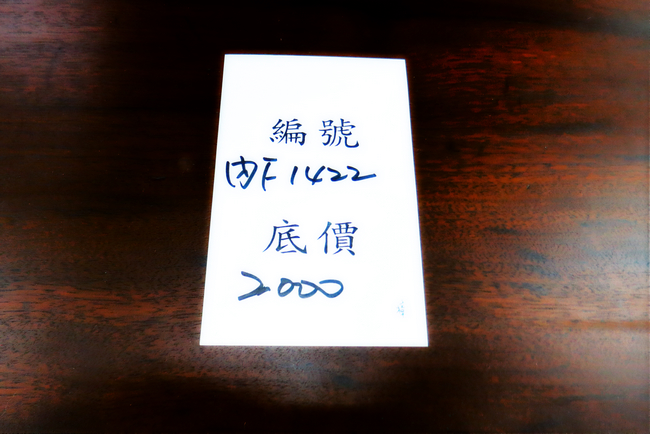 編號
内F1422
底價
2000